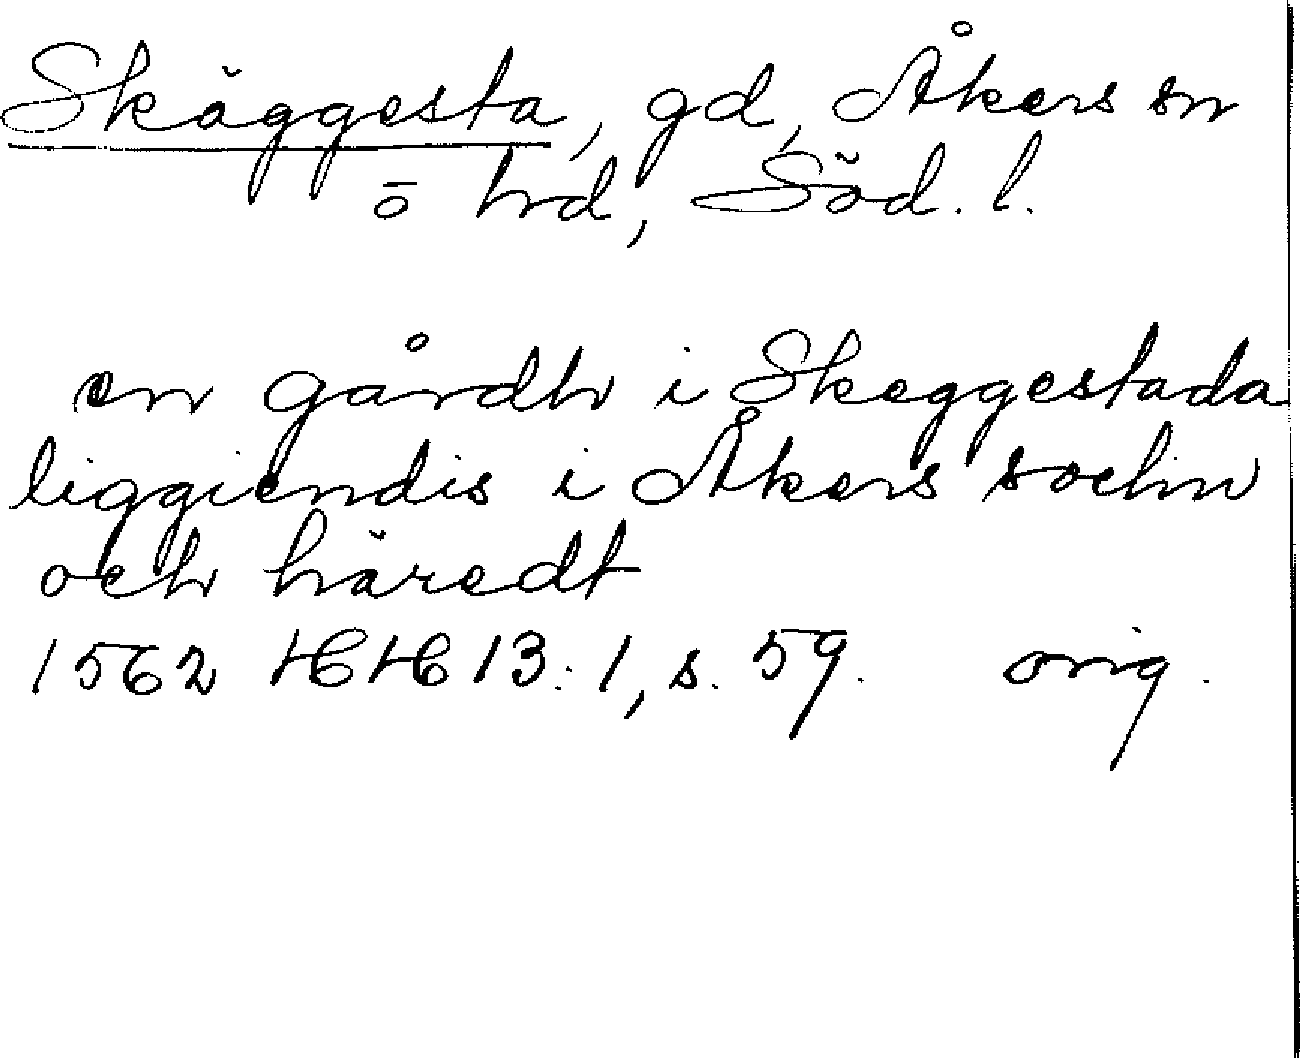 Skäggesta, gd, Åkers sn
o hd, Söd. l.
en gårdh i Skeggestada
liggiendis i Åkers sochn
och häredt
1562 HH 13:1, s. 59. orig.